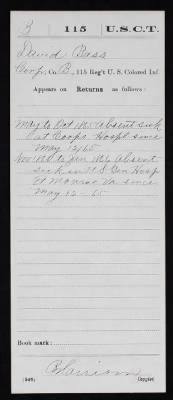 B | 115 | U.S.C.T.
David Bass
Corp, Co. B, 115 Reg't U. S. Colored Inf
Appears on Returns as follows:
May to Oct 65 Absent sick
at Corps Hospt since
May 12/65
Nov 65 to Jan 66 Absent
sick in U S Gen Hosp
Ft Monroe Va since
May 12-65
Book mark:
(546)
Copyist.